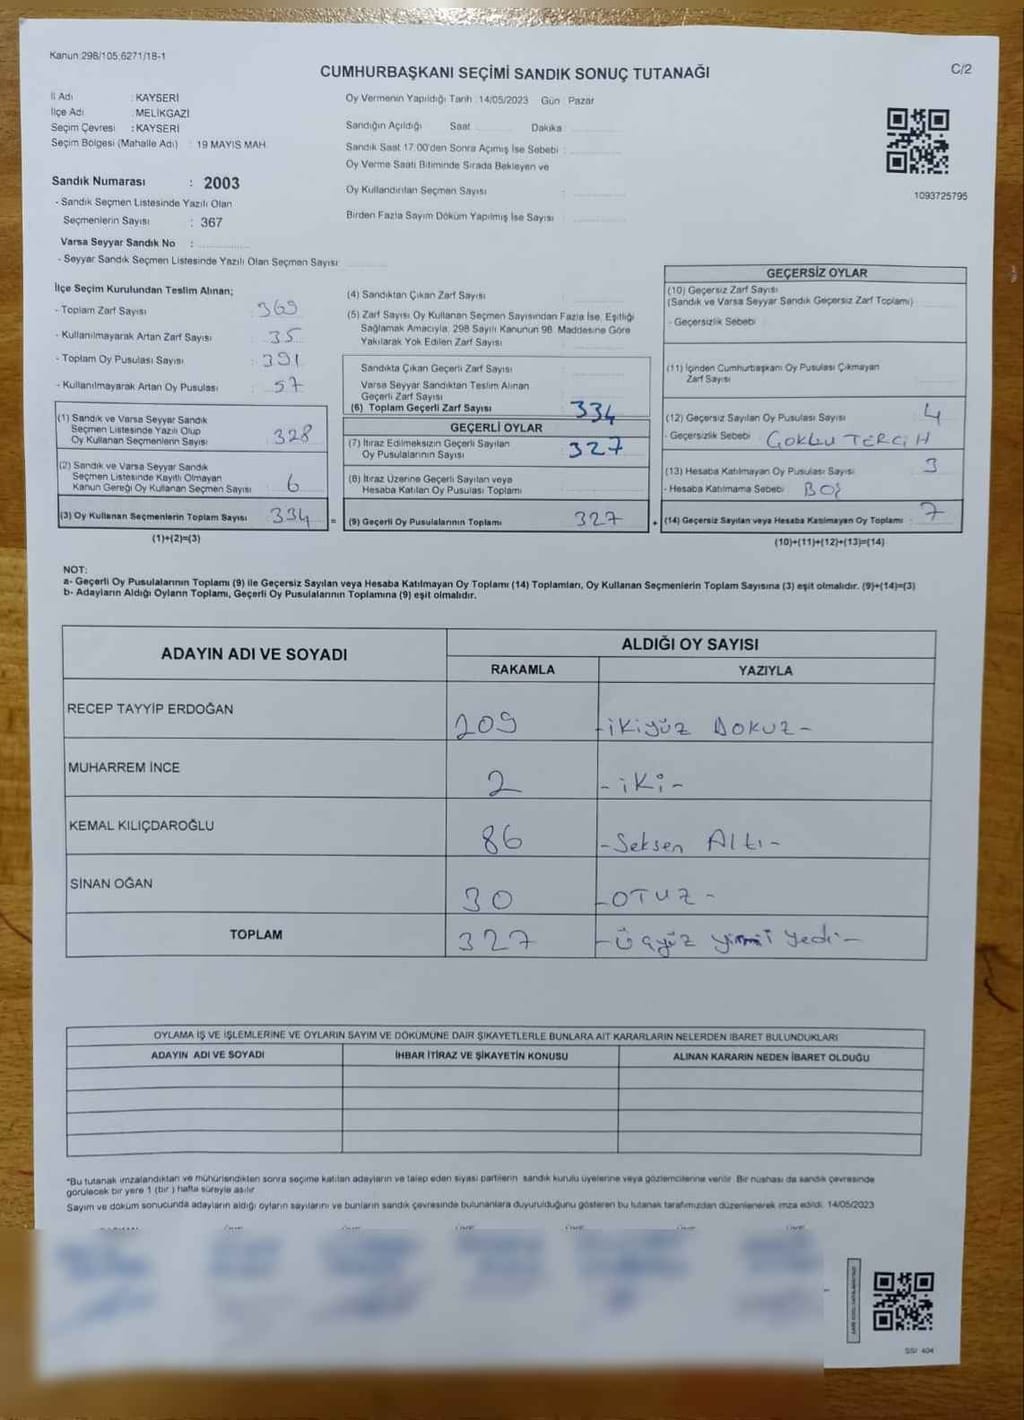 Kanun:298/105,6271/18-1
CUMHURBAŞKANI SEÇİMİ SANDIK SONUÇ TUTANAĞI
C/2
İl Adı : KAYSERİ
İlçe Adı : MELİKGAZİ
Seçim Çevresi : KAYSERİ
Seçim Bölgesi (Mahalle Adı) : 19 MAYIS MAH.
Sandık Numarası : 2003
- Sandık Seçmen Listesinde Yazılı Olan
Seçmenlerin Sayısı : 367
Varsa Seyyar Sandık No :
- Seyyar Sandık Seçmen Listesinde Yazılı Olan Seçmen Sayısı
Oy Vermenin Yapıldığı Tarih : 14/05/2023 Gün : Pazar
Sandığın Açıldığı Saat Dakika
Sandık Saat 17:00'den Sonra Açımış İse Sebebi :
Oy Verme Saati Bitiminde Sırada Bekleyen ve
Oy Kullandırılan Seçmen Sayısı :
Birden Fazla Sayım Döküm Yapılmış İse Sayısı :
1093725795
İlçe Seçim Kurulundan Teslim Alınan;
- Toplam Zarf Sayısı : 369
- Kullanılmayarak Artan Zarf Sayısı : 35
- Toplam Oy Pusulası Sayısı : 391
- Kullanılmayarak Artan Oy Pusulası : 57
(1) Sandık ve Varsa Seyyar Sandık
Seçmen Listesinde Yazılı Olup
Oy Kullanan Seçmenlerin Sayısı 328
(2) Sandık ve Varsa Seyyar Sandık
Seçmen Listesinde Kayıtlı Olmayan
Kanun Gereği Oy Kullanan Seçmen Sayısı 6
(3) Oy Kullanan Seçmenlerin Toplam Sayısı 334 =
(1)+(2)=(3)
(4) Sandıktan Çıkan Zarf Sayısı
(5) Zarf Sayısı Oy Kullanan Seçmen Sayısından Fazla İse, Eşitliği
Sağlamak Amacıyla, 298 Sayılı Kanunun 98. Maddesine Göre
Yakılarak Yok Edilen Zarf Sayısı
Sandıkta Çıkan Geçerli Zarf Sayısı
Varsa Seyyar Sandıktan Teslim Alınan
Geçerli Zarf Sayısı
(6) Toplam Geçerli Zarf Sayısı 334
GEÇERLİ OYLAR
(7) İtiraz Edilmeksizin Geçerli Sayılan
Oy Pusulalarının Sayısı 327
(8) İtiraz Üzerine Geçerli Sayılan veya
Hesaba Katılan Oy Pusulası Toplamı
(9) Geçerli Oy Pusulalarının Toplamı 327 +
GEÇERSİZ OYLAR
(10) Geçersiz Zarf Sayısı
(Sandık ve Varsa Seyyar Sandık Geçersiz Zarf Toplamı)
- Geçersizlik Sebebi
(11) İçinden Cumhurbaşkanı Oy Pusulası Çıkmayan
Zarf Sayısı
(12) Geçersiz Sayılan Oy Pusulası Sayısı 4
- Geçersizlik Sebebi ÇOKLU TERCİH
(13) Hesaba Katılmayan Oy Pusulası Sayısı 3
- Hesaba Katılmama Sebebi BOŞ
(14) Geçersiz Sayılan veya Hesaba Katılmayan Oy Toplamı 7
(10)+(11)+(12)+(13)=(14)
NOT:
a- Geçerli Oy Pusulalarının Toplamı (9) ile Geçersiz Sayılan veya Hesaba Katılmayan Oy Toplamı (14) Toplamları, Oy Kullanan Seçmenlerin Toplam Sayısına (3) eşit olmalıdır. (9)+(14)=(3)
b- Adayların Aldığı Oyların Toplamı, Geçerli Oy Pusulalarının Toplamına (9) eşit olmalıdır.
ADAYIN ADI VE SOYADI
ALDIĞI OY SAYISI
RAKAMLA YAZIYLA
RECEP TAYYİP ERDOĞAN 209 -İkiyüz DOKUZ-
MUHARREM İNCE 2 -iki-
KEMAL KILIÇDAROĞLU 86 -Seksen Altı-
SİNAN OĞAN 30 -OTUZ-
TOPLAM 327 -Üçyüz yirmi yedi-
OYLAMA İŞ VE İŞLEMLERİNE VE OYLARIN SAYIM VE DÖKÜMÜNE DAİR ŞİKAYETLERLE BUNLARA AİT KARARLARIN NELERDEN İBARET BULUNDUKLARI
ADAYIN ADI VE SOYADI İHBAR İTİRAZ VE ŞİKAYETİN KONUSU ALINAN KARARIN NEDEN İBARET OLDUĞU
*Bu tutanak imzalandıktan ve mühürlendikten sonra seçime katılan adayların ve talep eden siyasi partilerin sandık kurulu üyelerine veya gözlemcilerine verilir. Bir nüshası da sandık çevresinde
görülecek bir yere 1 (bir) hafta süreyle asılır
Sayım ve döküm sonucunda adayların aldığı oyların sayılarını ve bunların sandık çevresinde bulunanlara duyurulduğunu gösteren bu tutanak tarafımızdan düzenlenerek imza edildi. 14/05/2023